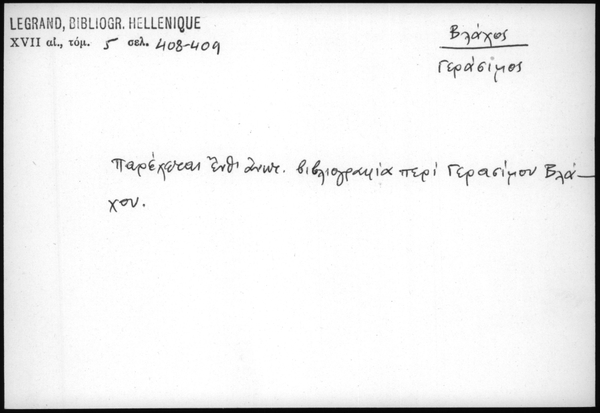 LEGRAND, BIBLIOGR. HELLENIQUE
XVII αἰ., τόμ. 5 σελ. 408-409
Βλάχος
Γεράσιμος
Παρέχεται ἔνθ᾽ ἀνωτ. βιβλιογραφία περὶ Γερασίμου Βλά-
χου.